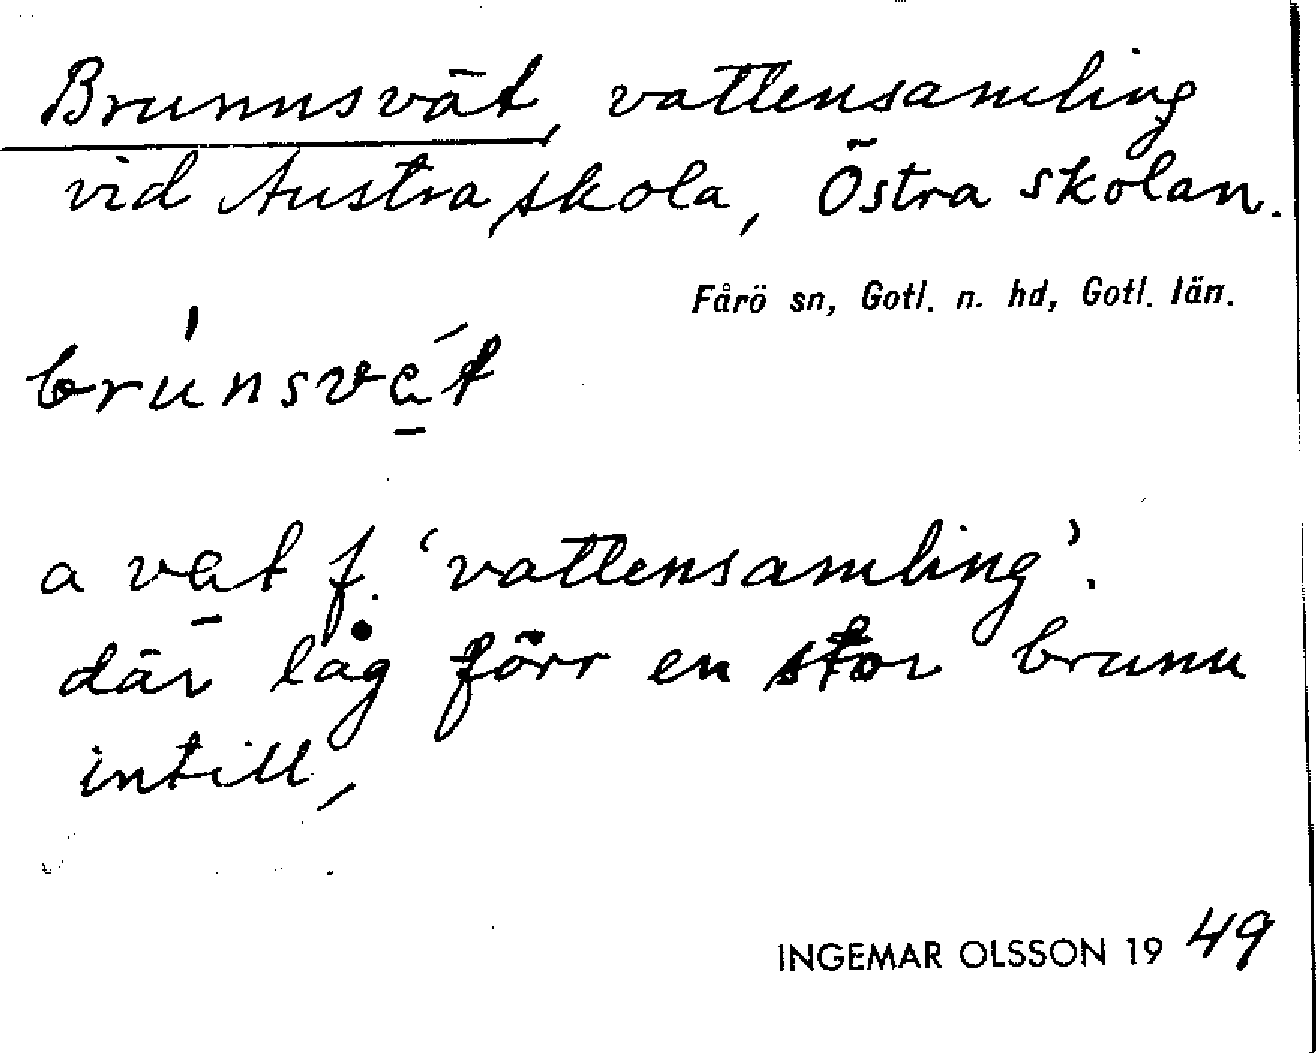 Brunnsvät, vattensamling
vid Austra skola, Östra skolan.
Fårö sn, Gotl. n. hd, Gotl. län.
brúnsvé̱t
a ve̱t f. ‘vattensamling’.
där låg förr en stor brunn
intill,
INGEMAR OLSSON 1949